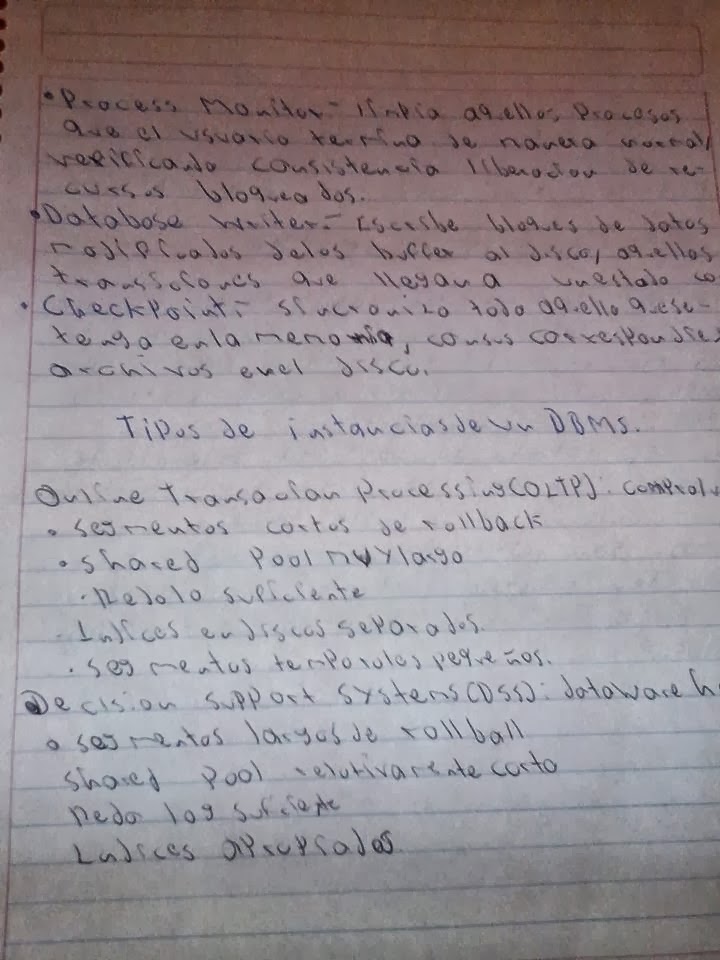 • Process Monitor- limpia aquellos procesos
que el usuario termina de manera normal,
verificando consistencia liberacion de re-
cursos bloqueados.
• Database writer- Escribe bloques de datos
modificados delos buffer al disco, aquellos
transaciones que llegan a unestado co
• Checkpoint- sincroniza todo aquello quese-
tenga enla memoria, consus correspondie
archivos enel disco.
Tipos de instancias de un DBMS.
Online Transacion Processing (OLTP): comprals
• segmentos cortos de rollback
• shared Pool muy largo
• suficiente
• Indices endiscos separados.
• segmentos temporales pequeños.
Decision support systems (DSS): dataware h
• segmentos largos de rollball
shared pool relativamente corto
Redo log suficiente
Indices apropiados